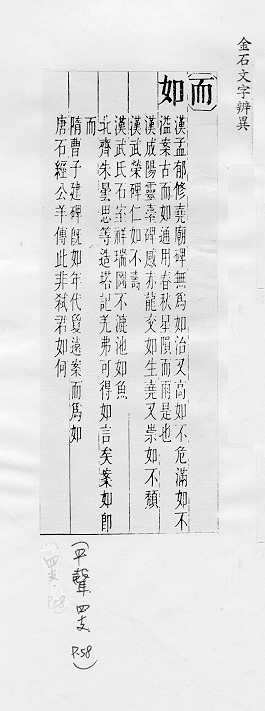 金石文字辨異
而
如
漢孟郁修堯廟碑無為如治又高如不危滿如不
溢案古而如通用春秋星隕而雨是也
漢成陽靈臺碑感赤龍交如生堯又崇如不頹
漢武榮碑仁如不壽
漢武氏石室祥瑞圖不漉池如魚
北齊朱曇思等造塔記羌弗可得如言矣案如即
而
隋曹子建碑既如年代敻遠案而為如
唐石經公羊傳此非弒君如何
(平聲 四支 P.58)
(四支 P.58